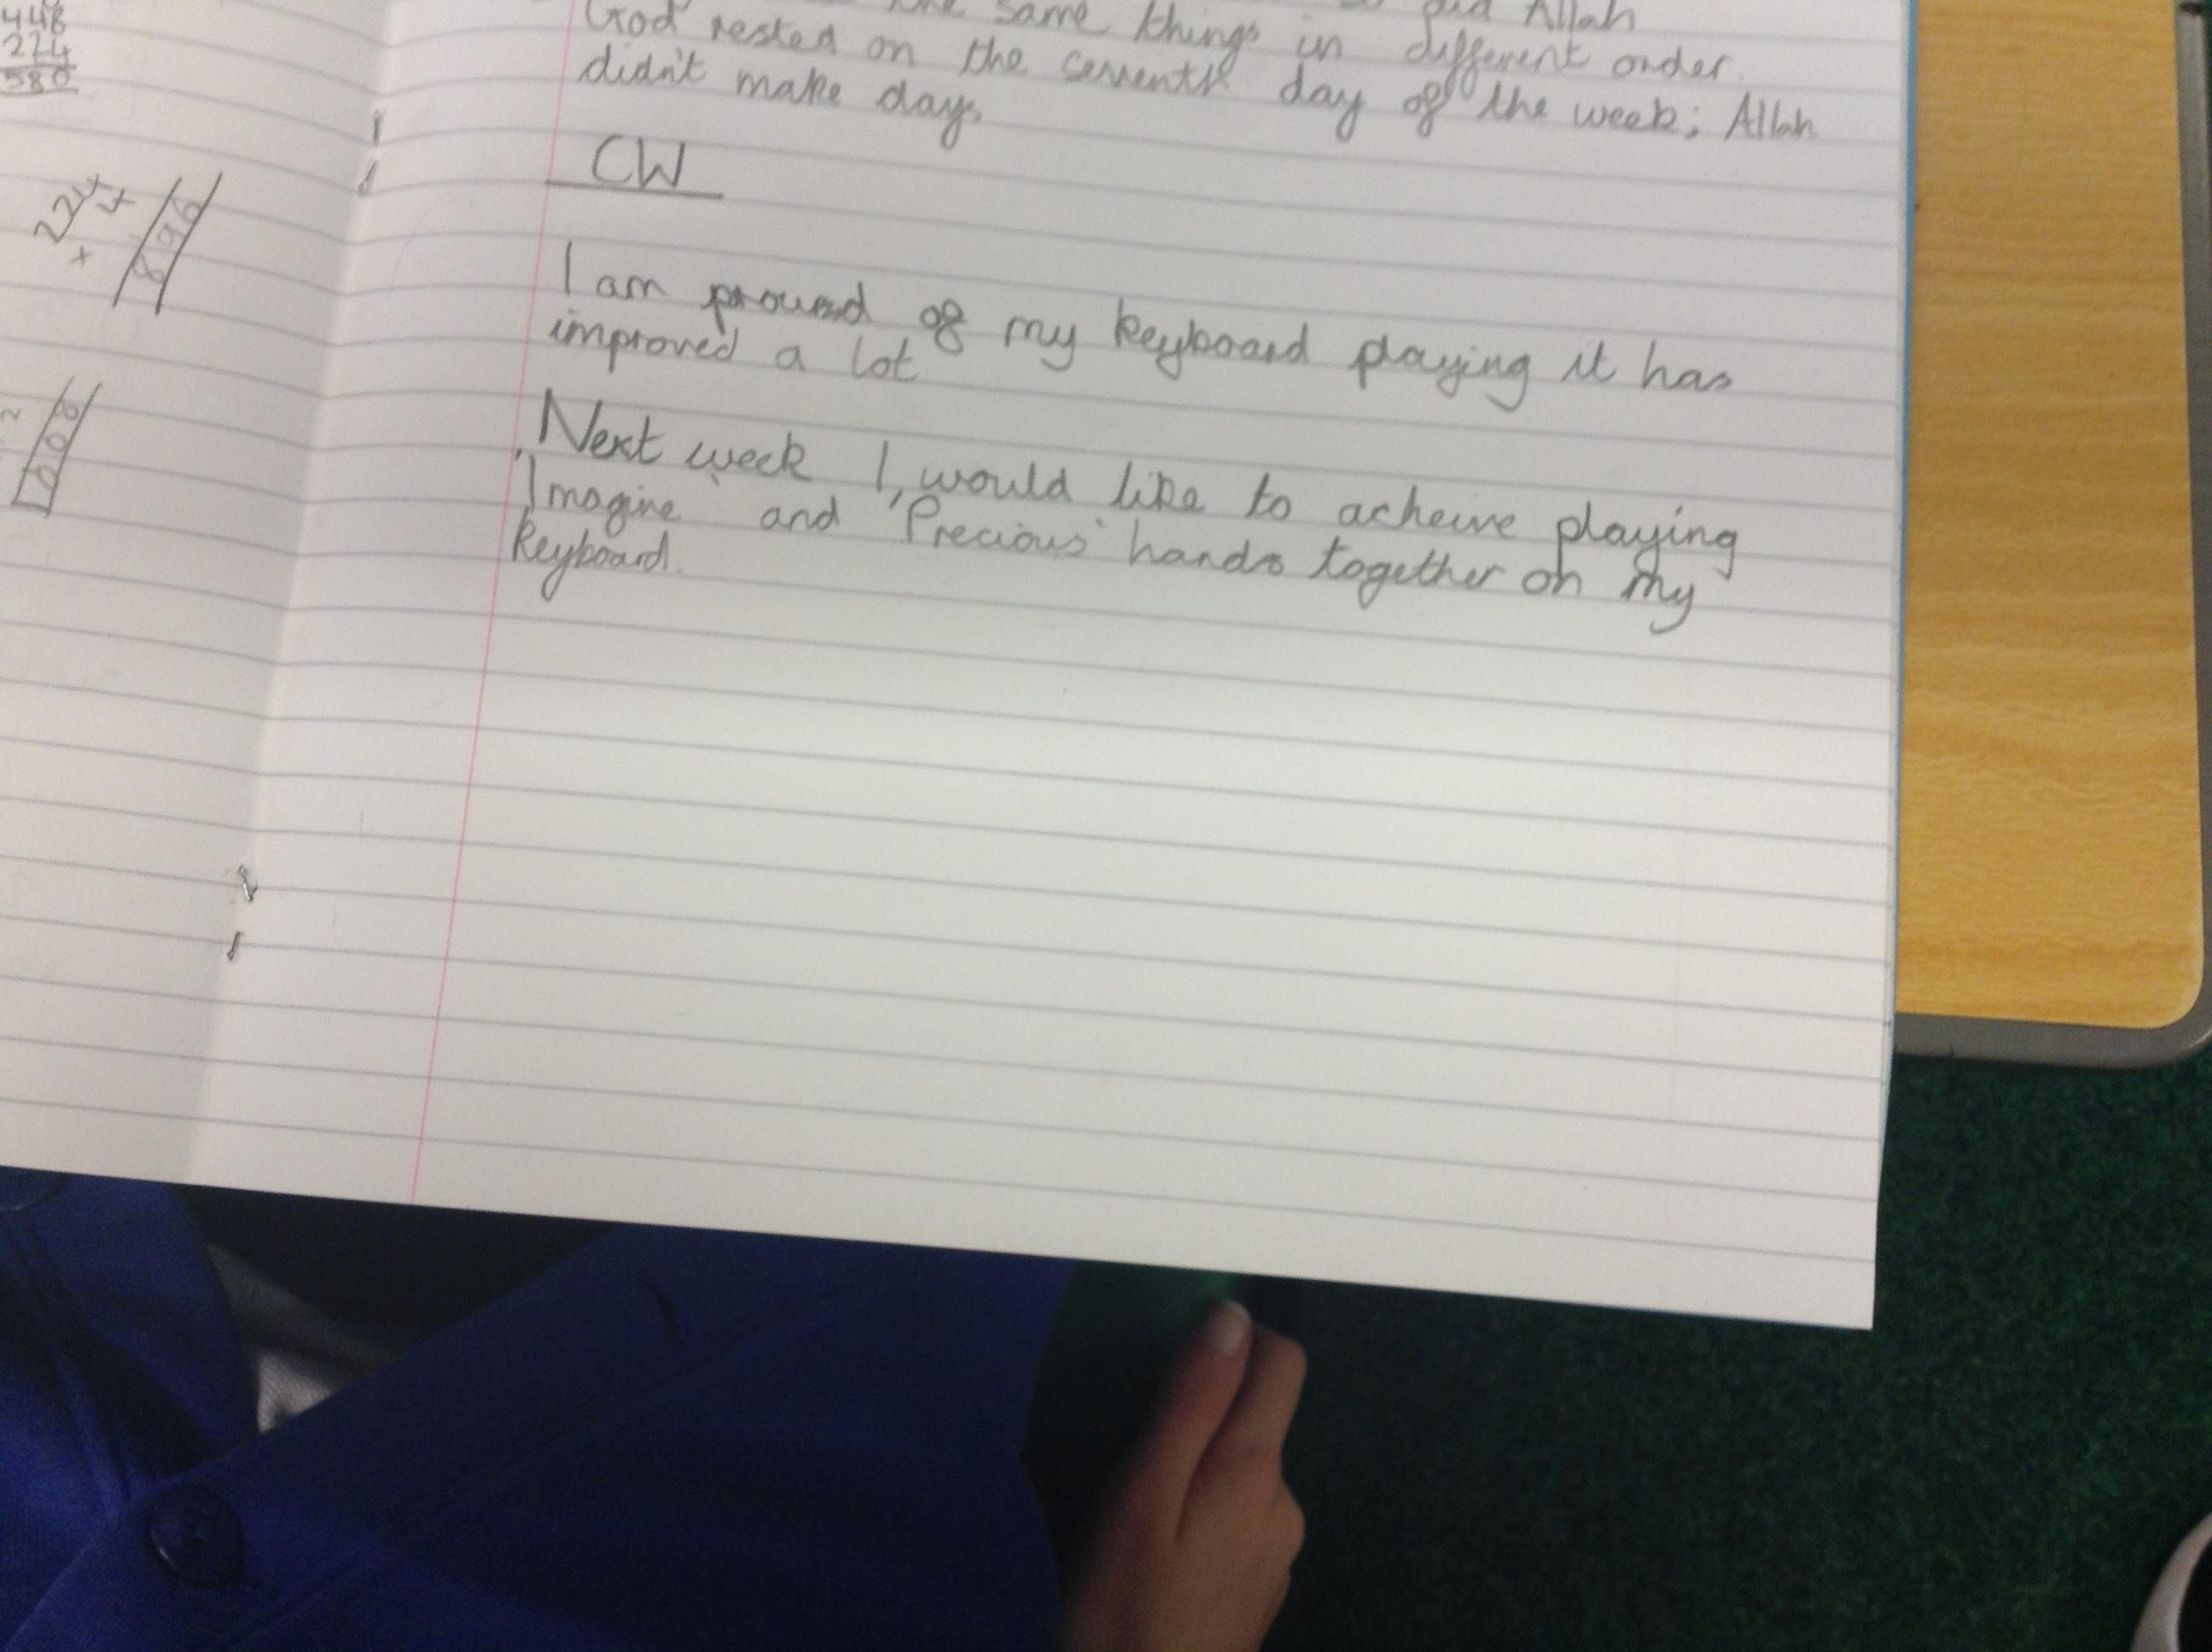 448
224
580
224
× 4
896
same things in different order
God rested on the seventh day of the week; Allah
didn't make days
CW
I am proud of my keyboard playing it has
improved a lot
Next week I would like to acheive playing
'Imagine' and 'Precious' hands together on my
keyboard.